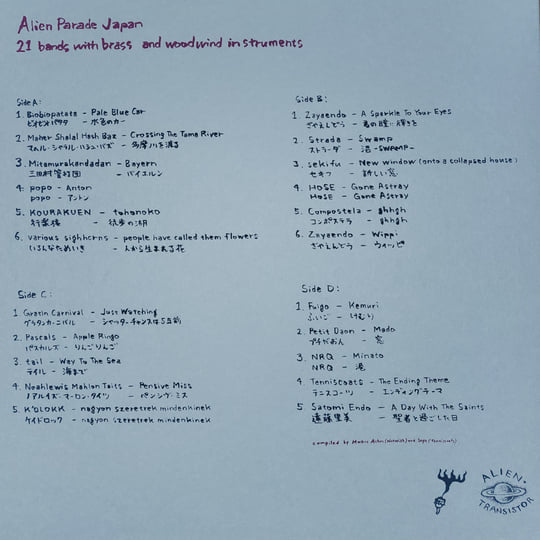 Alien Parade Japan
21 bands with brass and woodwind instruments
Side A:
1. Biobiopatata - Pale Blue Car
ビオビオパタタ - 水色のカー
2. Maher Shalal Hash Baz - Crossing The Tama River
マヘル・シャラル・ハシュ・バズ - 多摩川を渡る
3. Mitamurakandadan - Bayern
三田村管打団 - バイエルン
4. popo - Anton
popo - アントン
5. KOURAKUEN - tohonoko
行楽猿 - 徒歩の湖
6. various sighhorns - people have called them flowers
いろんなためいき - 人から生まれる花
Side B:
1. Zayaendo - A Sparkle To Your Eyes
ざやえんどう - 君の瞳に輝きを
2. Strada - Swamp
ストラーダ - 沼 -SWAMP-
3. sekifu - New window (onto a collapsed house)
セキフ - 新しい窓
4. HOSE - Gone Astray
HOSE - Gone Astray
5. Compostela - ghhgh
コンポステラ - ghhgh
6. Zayaendo - Wippi
ざやえんどう - ウィーッピ
Side C:
1. Gratin Carnival - Just Watching
グラタンカーニバル - シャッターチャンスは5分前
2. Pascals - Apple Ringo
パスカルズ - りんごりんご
3. tail - Way To The Sea
テイル - 海まで
4. Noahlewis Mahlon Taits - Pensive Miss
ノアルイズ・マーロン・タイツ - パンシヴ・ミス
5. K'DLOKK - nagyon szeretrek mindenkinek
ケイドロック - nagyon szeretrek mindenkinek
Side D:
1. Fuigo - Kemuri
ふいご - けむり
2. Petit Daon - Mado
プチだおん - 窓
3. NRQ - Minato
NRQ - 港
4. Tenniscoats - The Ending Theme
テニスコーツ - エンディングテーマ
5. Satomi Endo - A Day With The Saints
遠藤里美 - 聖者と過ごした日
compiled by Markus Acher (Notwist) and Saya (Tenniscoats)
ALIEN.
TRANSISTOR